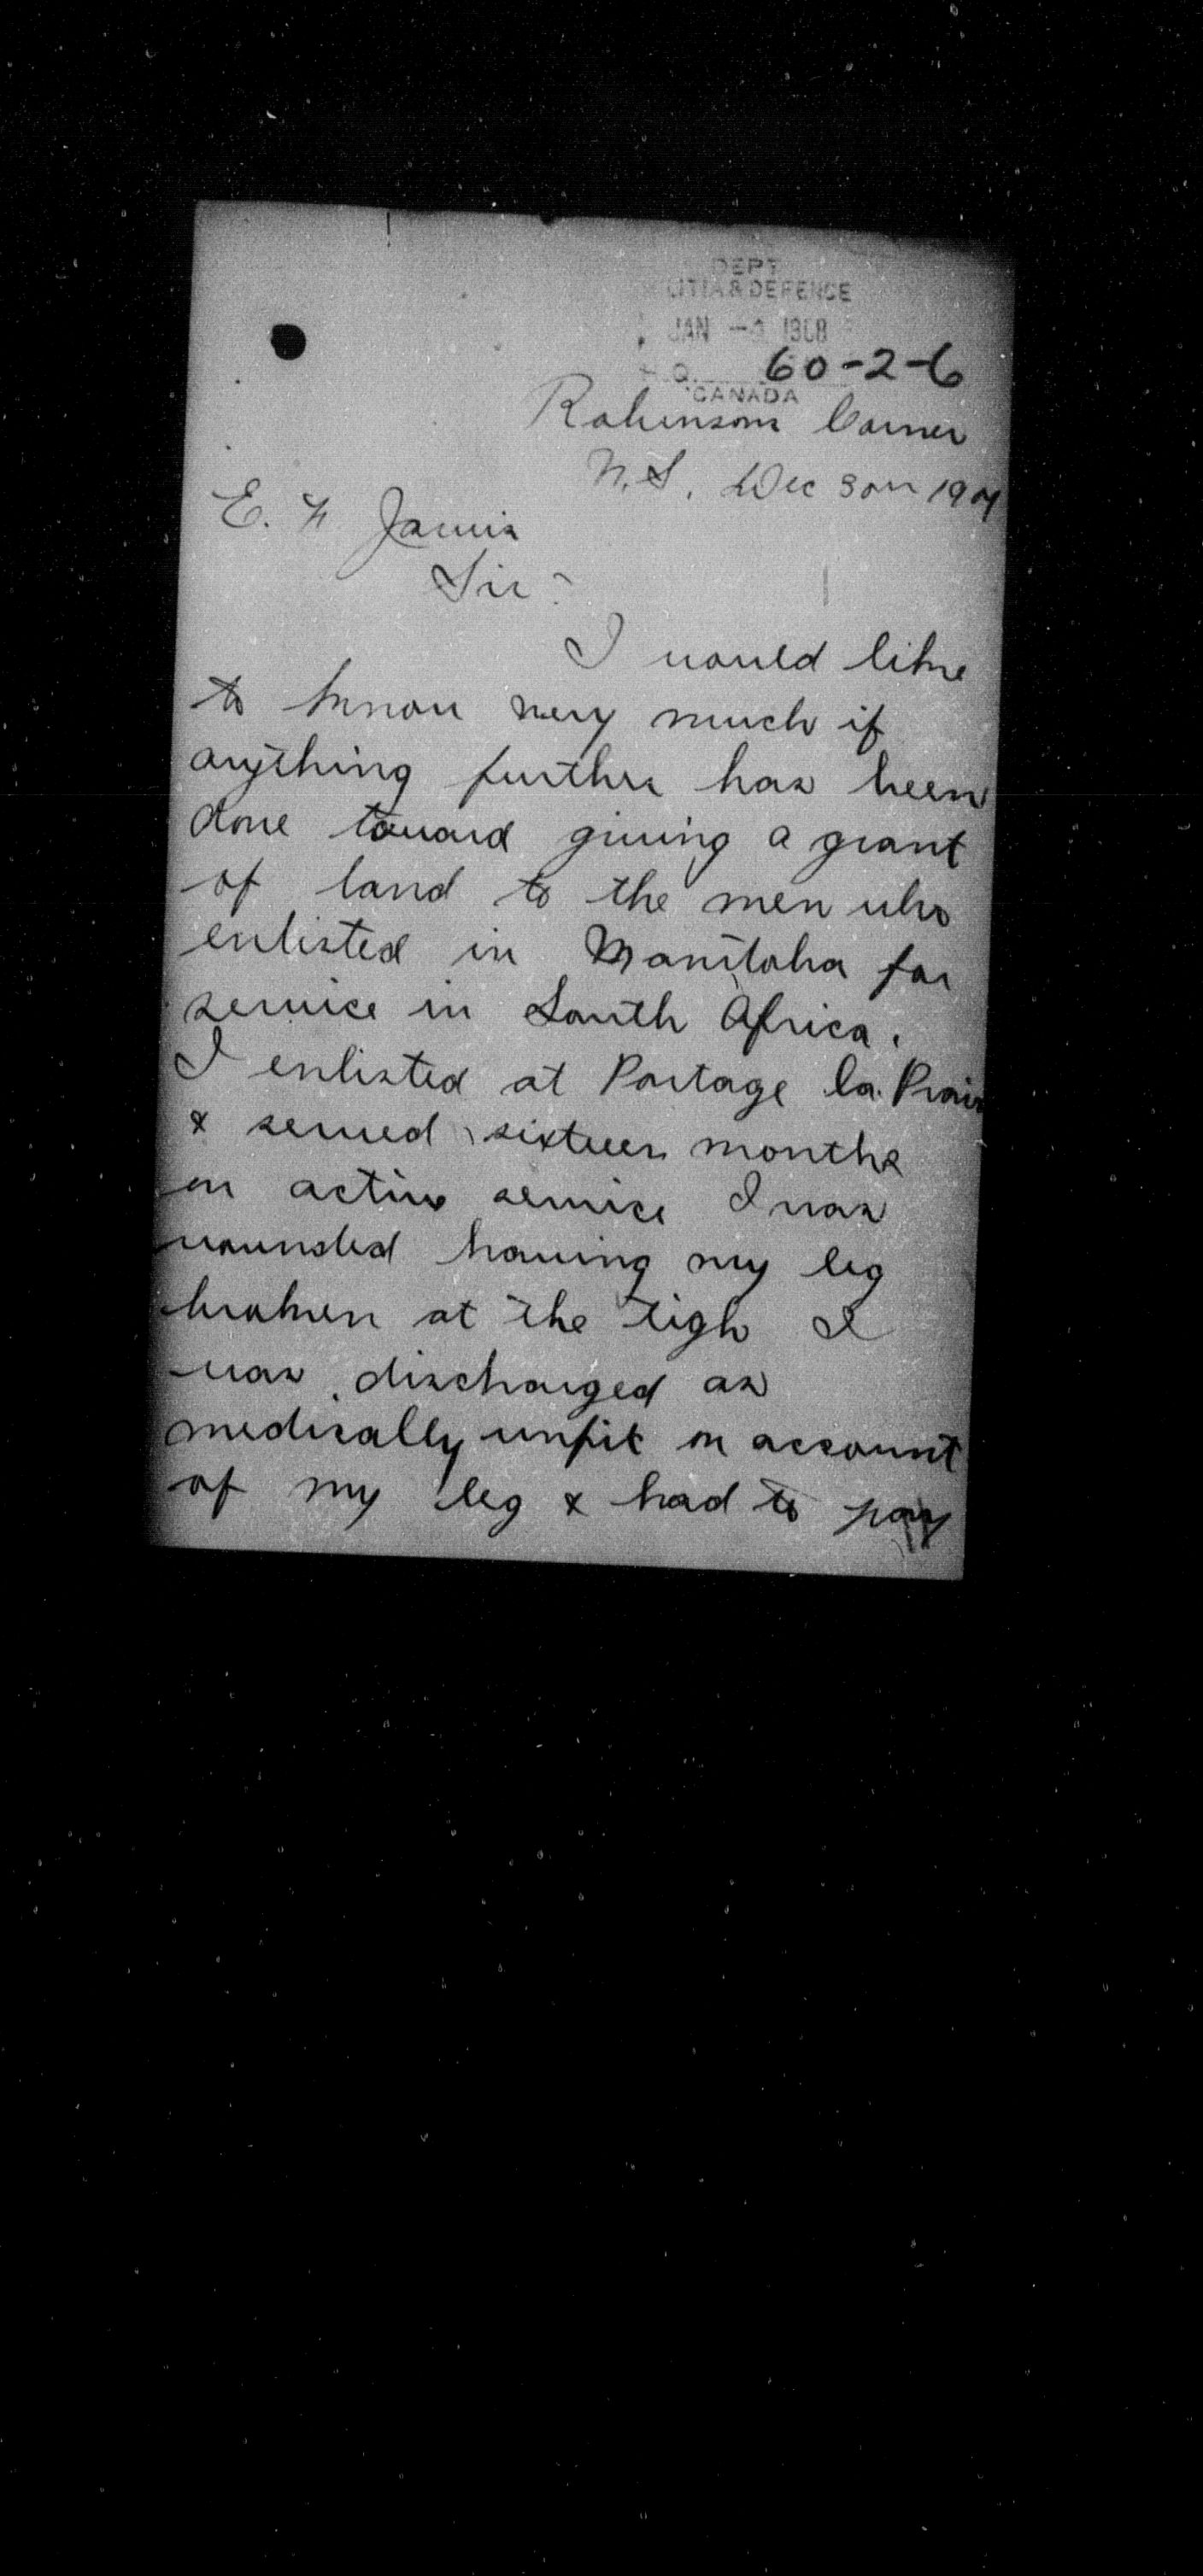 DEPT
LITIA & DEFENCE
JAN 1908
Q. 60-2-6
CANADA
Robinsons Corner
N.S. Dec 30th 1907
E. F. Jarvis
Sir:-
I would like
to know very much if
anything further has been
done toward giving a grant
of land to the men who
enlisted in Manitoba for
service in South Africa.
I enlisted at Portage la Prair
& served sixteen months
on active service I was
wounded having my leg
broken at the tigh I
was discharged as
medically unfit on account
of my leg & had to pay